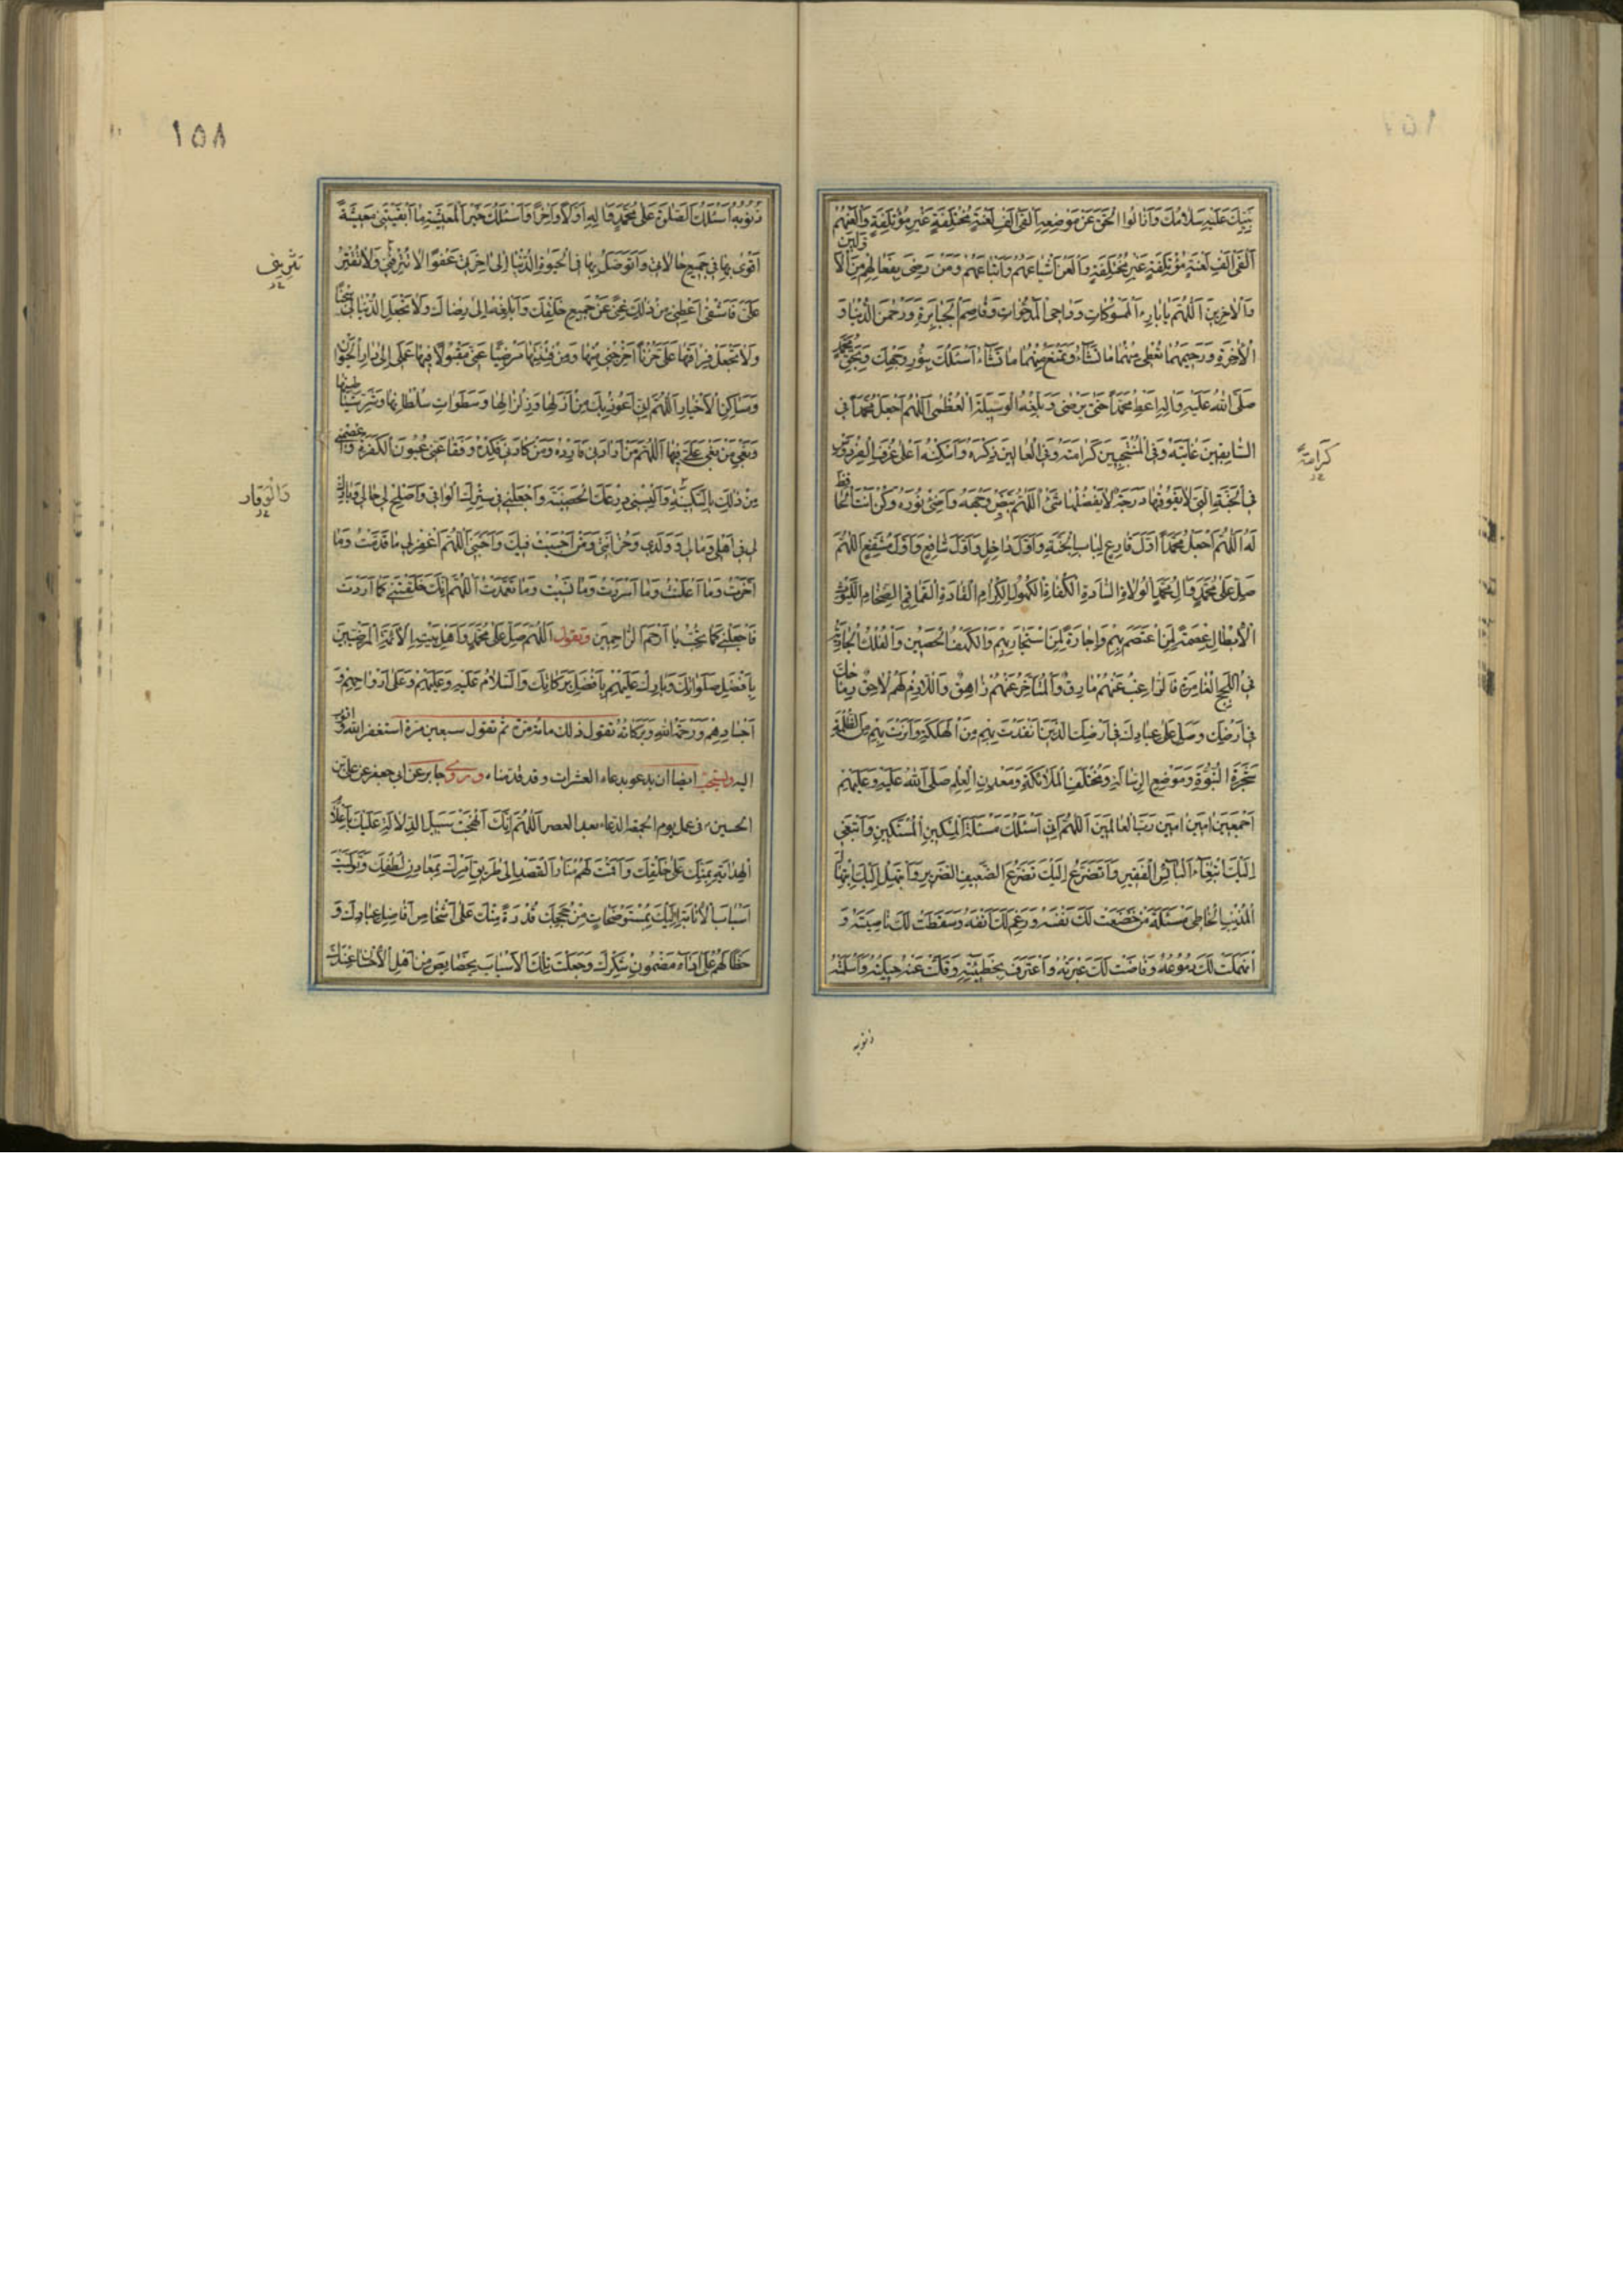 نَبِيِّكَ عَلَيْهِ سَلَامُكَ وَاَزَالُوا الْحَقَّ عَنْ مَوْضِعِهِ اَلْفَیْ اَلْفِ لَعْنَةٍ مُخْتَلِفَةٍ غَيْرِ مُؤْتَلِفَةٍ وَالْعَنْهُمْ
اَلْفَیْ اَلْفِ لَعْنَةٍ مُؤْتَلِفَةٍ غَيْرِ مُخْتَلِفَةٍ وَالْعَنْ اَشْيَاعَهُمْ وَاَتْبَاعَهُمْ وَمَنْ رَضِيَ بِفَعَالِهِمْ مِنَ الْاَوَّلِينَ
وَالْاٰخِرِينَ اَللّٰهُمَّ يَا بَارِئَ الْمَسْمُوكَاتِ وَدَاحِيَ الْمَدْحُوَّاتِ وَقَاصِمَ الْجَبَابِرَةِ وَرَحْمٰنَ الدُّنْيَا وَ
الْاٰخِرَةِ وَرَحِيمَهُمَا تُعْطِي مِنْهُمَا مَا تَشَاءُ وَتَمْنَعُ مِنْهُمَا مَا تَشَاءُ اَسْئَلُكَ بِنُورِ وَجْهِكَ وَبِحَقِّ مُحَمَّدٍ
صَلَّى اللّٰهُ عَلَيْهِ وَاٰلِهِ اَعْطِ مُحَمَّدًا حَتّٰى يَرْضٰى وَبَلِّغْهُ الْوَسِيلَةَ الْعُظْمٰى اَللّٰهُمَّ اجْعَلْ مُحَمَّدًا فِي
السَّابِقِينَ غَايَتَهُ وَفِي الْمُنْتَجَبِينَ كَرَامَتَهُ وَفِي الْعَالَمِينَ ذِكْرَهُ وَاَسْكِنْهُ اَعْلٰى غُرَفِ الْفِرْدَوْسِ
كَرَامَتَهُ
فِي الْجَنَّةِ الَّتِي لَا يَفُوقُهَا دَرَجَةٌ لَا يَفْضُلُهَا شَيْءٌ اَللّٰهُمَّ بَيِّضْ وَجْهَهُ وَاَضِئْ نُورَهُ وَكُنْ اَنْتَ الْحَافِظَ
لَهُ اَللّٰهُمَّ اجْعَلْ مُحَمَّدًا اَوَّلَ قَارِعٍ لِبَابِ الْجَنَّةِ وَاَوَّلَ دَاخِلٍ وَاَوَّلَ شَافِعٍ وَاَوَّلَ مُشَفَّعٍ اَللّٰهُمَّ
صَلِّ عَلٰى مُحَمَّدٍ وَاٰلِ مُحَمَّدٍ الْوُلَاةِ السَّادَةِ الْكُفَاةِ الْكُهُولِ الْكِرَامِ الْقَادَةِ الْقَمَاقِمِ الضِّخَامِ اللُّيُوثِ
الْاَبْطَالِ عِصْمَةً لِمَنِ اعْتَصَمَ بِهِمْ وَاِجَارَةً لِمَنِ اسْتَجَارَ بِهِمْ وَالْكَهْفُ الْحَصِينُ وَالْفُلْكُ الْجَارِيَةُ
فِي اللُّجَجِ الْغَامِرَةِ فَالرَّاغِبُ عَنْهُمْ مَارِقٌ وَالْمُتَاَخِّرُ عَنْهُمْ زَاهِقٌ وَاللَّازِمُ لَهُمْ لَاحِقٌ رِمَاحُكَ
فِي اَرْضِكَ وَصَلِّ عَلٰى عِبَادِكَ فِي اَرْضِكَ الَّذِينَ اَنْقَذْتَ بِهِمْ مِنَ الْهَلَكَةِ وَاَنَرْتَ بِهِمْ مِنَ الظُّلْمَةِ
شَجَرَةِ النُّبُوَّةِ وَمَوْضِعِ الرِّسَالَةِ وَمُخْتَلَفِ الْمَلَائِكَةِ وَمَعْدِنِ الْعِلْمِ صَلَّى اللّٰهُ عَلَيْهِ وَعَلَيْهِمْ
اَجْمَعِينَ اٰمِينَ اٰمِينَ رَبَّ الْعَالَمِينَ اَللّٰهُمَّ اِنِّي اَسْئَلُكَ مَسْئَلَةَ الْمِسْكِينِ الْمُسْتَكِينِ وَاَبْتَغِي
اِلَيْكَ ابْتِغَاءَ الْبَائِسِ الْفَقِيرِ وَاَتَضَرَّعُ اِلَيْكَ تَضَرُّعَ الضَّعِيفِ الضَّرِيرِ وَاَبْتَهِلُ اِلَيْكَ ابْتِهَالَ
الْمُذْنِبِ الْخَاطِئِ مَسْئَلَةَ مَنْ خَضَعَتْ لَكَ نَفْسُهُ وَرَغِمَ لَكَ اَنْفُهُ وَسَقَطَتْ لَكَ نَاصِيَتُهُ وَ
انْهَمَلَتْ لَكَ دُمُوعُهُ وَفَاضَتْ لَكَ عَبْرَتُهُ وَاعْتَرَفَ بِخَطِيئَتِهِ وَقَلَّتْ عَنْهُ حِيلَتُهُ وَاَسْلَمَتْهُ
ذنوبه
١٥٨
ذُنُوبُهُ اَسْئَلُكَ الصَّلٰوةَ عَلٰى مُحَمَّدٍ وَاٰلِهِ اَوَّلًا وَاٰخِرًا وَاَسْئَلُكَ خَيْرَ الْمَعِيشَةِ مَا اَبْقَيْتَنِي مَعِيشَةً
اَقْوٰى بِهَا فِي جَمِيعِ حَالَاتِي وَاَتَوَصَّلُ بِهَا فِي الْحَيٰوةِ الدُّنْيَا اِلٰى اٰخِرَتِي عَفْوًا لَا تُتْرِفُنِي وَلَا تُقَتِّرْ
عَلَيَّ فَاَشْقٰى اَعْطِنِي مِنْ ذٰلِكَ غِنًى عَنْ جَمِيعِ خَلْقِكَ وَاَبْلِغْهُ اِلٰى رِضَاكَ وَلَا تَجْعَلِ الدُّنْيَا لِي سِجْنًا
وَلَا تَجْعَلْ فِرَاقَهَا عَلَيَّ حُزْنًا اَخْرِجْنِي مِنْهَا وَمِنْ فِتْنَتِهَا مَرْضِيًّا عَنِّي مَقْبُولًا فِيهَا عَمَلِي اِلٰى دَارِ الْحَيَوَانِ
وَمَسَاكِنِ الْاَخْيَارِ اَللّٰهُمَّ اِنِّي اَعُوذُ بِكَ مِنْ اَزْلِهَا وَزِلْزَالِهَا وَسَطَوَاتِ سُلْطَانِهَا وَشَرِّ شَيَاطِينِهَا
وَبَغْيِ مَنْ بَغٰى عَلَيَّ فِيهَا اَللّٰهُمَّ مَنْ اَرَادَنِي فَاَرِدْهُ وَمَنْ كَادَنِي فَكِدْهُ وَفَقَا عَنِّي عُيُونَ الْكَفَرَةِ وَاعْصِمْنِي
مِنْ ذٰلِكَ بِالسَّكِينَةِ وَاَلْبِسْنِي دِرْعَكَ الْحَصِينَةَ وَاجْعَلْنِي فِي سِتْرِكَ الْوَاقِي وَاَصْلِحْ لِي حَالِي وَبَارِكْ
وَالْوَقَار
لِي فِي اَهْلِي وَمَالِي وَوَلَدِي وَحُزَانَتِي وَمَنْ اَحْبَبْتُ فِيكَ وَاَحَبَّنِي اَللّٰهُمَّ اغْفِرْ لِي مَا قَدَّمْتُ وَمَا
اَخَّرْتُ وَمَا اَعْلَنْتُ وَمَا اَسْرَرْتُ وَمَا نَسِيتُ وَمَا تَعَمَّدْتُ اَللّٰهُمَّ اِنَّكَ خَلَقْتَنِي كَمَا اَرَدْتَ
فَاجْعَلْنِي كَمَا تُحِبُّ يَا اَرْحَمَ الرَّاحِمِينَ وتقول اَللّٰهُمَّ صَلِّ عَلٰى مُحَمَّدٍ وَاَهْلِ بَيْتِهِ الْاَئِمَّةِ الْمَرْضِيِّينَ
بِاَفْضَلِ صَلَوَاتِكَ وَبَارِكْ عَلَيْهِمْ بِاَفْضَلِ بَرَكَاتِكَ وَالسَّلَامُ عَلَيْهِ وَعَلَيْهِمْ وَعَلٰى اَرْوَاحِهِمْ وَ
اَجْسَادِهِمْ وَرَحْمَةُ اللّٰهِ وَبَرَكَاتُهُ تقول ذلك مائة مرة ثم تقول سبعين مرة استغفر الله واتوب
اليه ويستحبّ ايضا ان يدعو بدعاء العشرات وقد قدّمناه وروى جابر عن ابي جعفر عن علي بن
الحسين في عمل يوم الجمعة الدعاء بعد العصر اَللّٰهُمَّ اِنَّكَ اَنْهَجْتَ سَبِيلَ الدَّلَالَةِ عَلَيْكَ بِاَعْلَامِ
الْهِدَايَةِ بِمَنِّكَ عَلٰى خَلْقِكَ وَاَقَمْتَ لَهُمْ مَنَارَ الْقَصْدِ اِلٰى طَرِيقِ اَمْرِكَ بِمَعَادِنِ لُطْفِكَ وَتَوَلَّيْتَ
اَسْبَابَ الْاِنَابَةِ اِلَيْكَ بِمُسْتَوْضَحَاتٍ مِنْ حُجَجِكَ قُدْرَةً مِنْكَ عَلٰى اسْتِخْلَاصِ اَفَاضِلِ عِبَادِكَ وَ
حَضًّا لَهُمْ عَلٰى اَدَاءِ مَضْمُونِ شُكْرِكَ وَجَعَلْتَ تِلْكَ الْاَسْبَابَ بِخَصَائِصَ مِنْ اَهْلِ الْاِحْسَانِ عِنْدَكَ